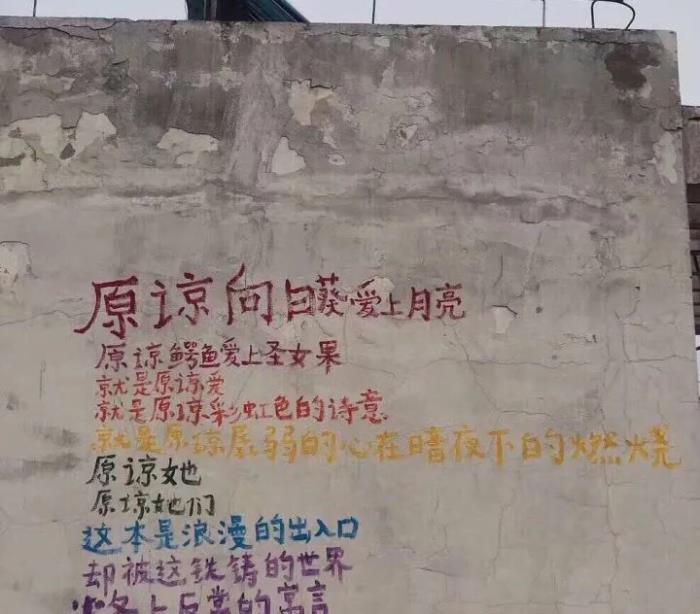 原谅向日葵爱上月亮
原谅鳄鱼爱上圣女果
就是原谅爱
就是原谅彩虹色的诗意
就是原谅孱弱的心在暗夜下的燃烧
原谅她
原谅她们
这本是浪漫的出入口
却被这铁铸的世界
上反常的寓言